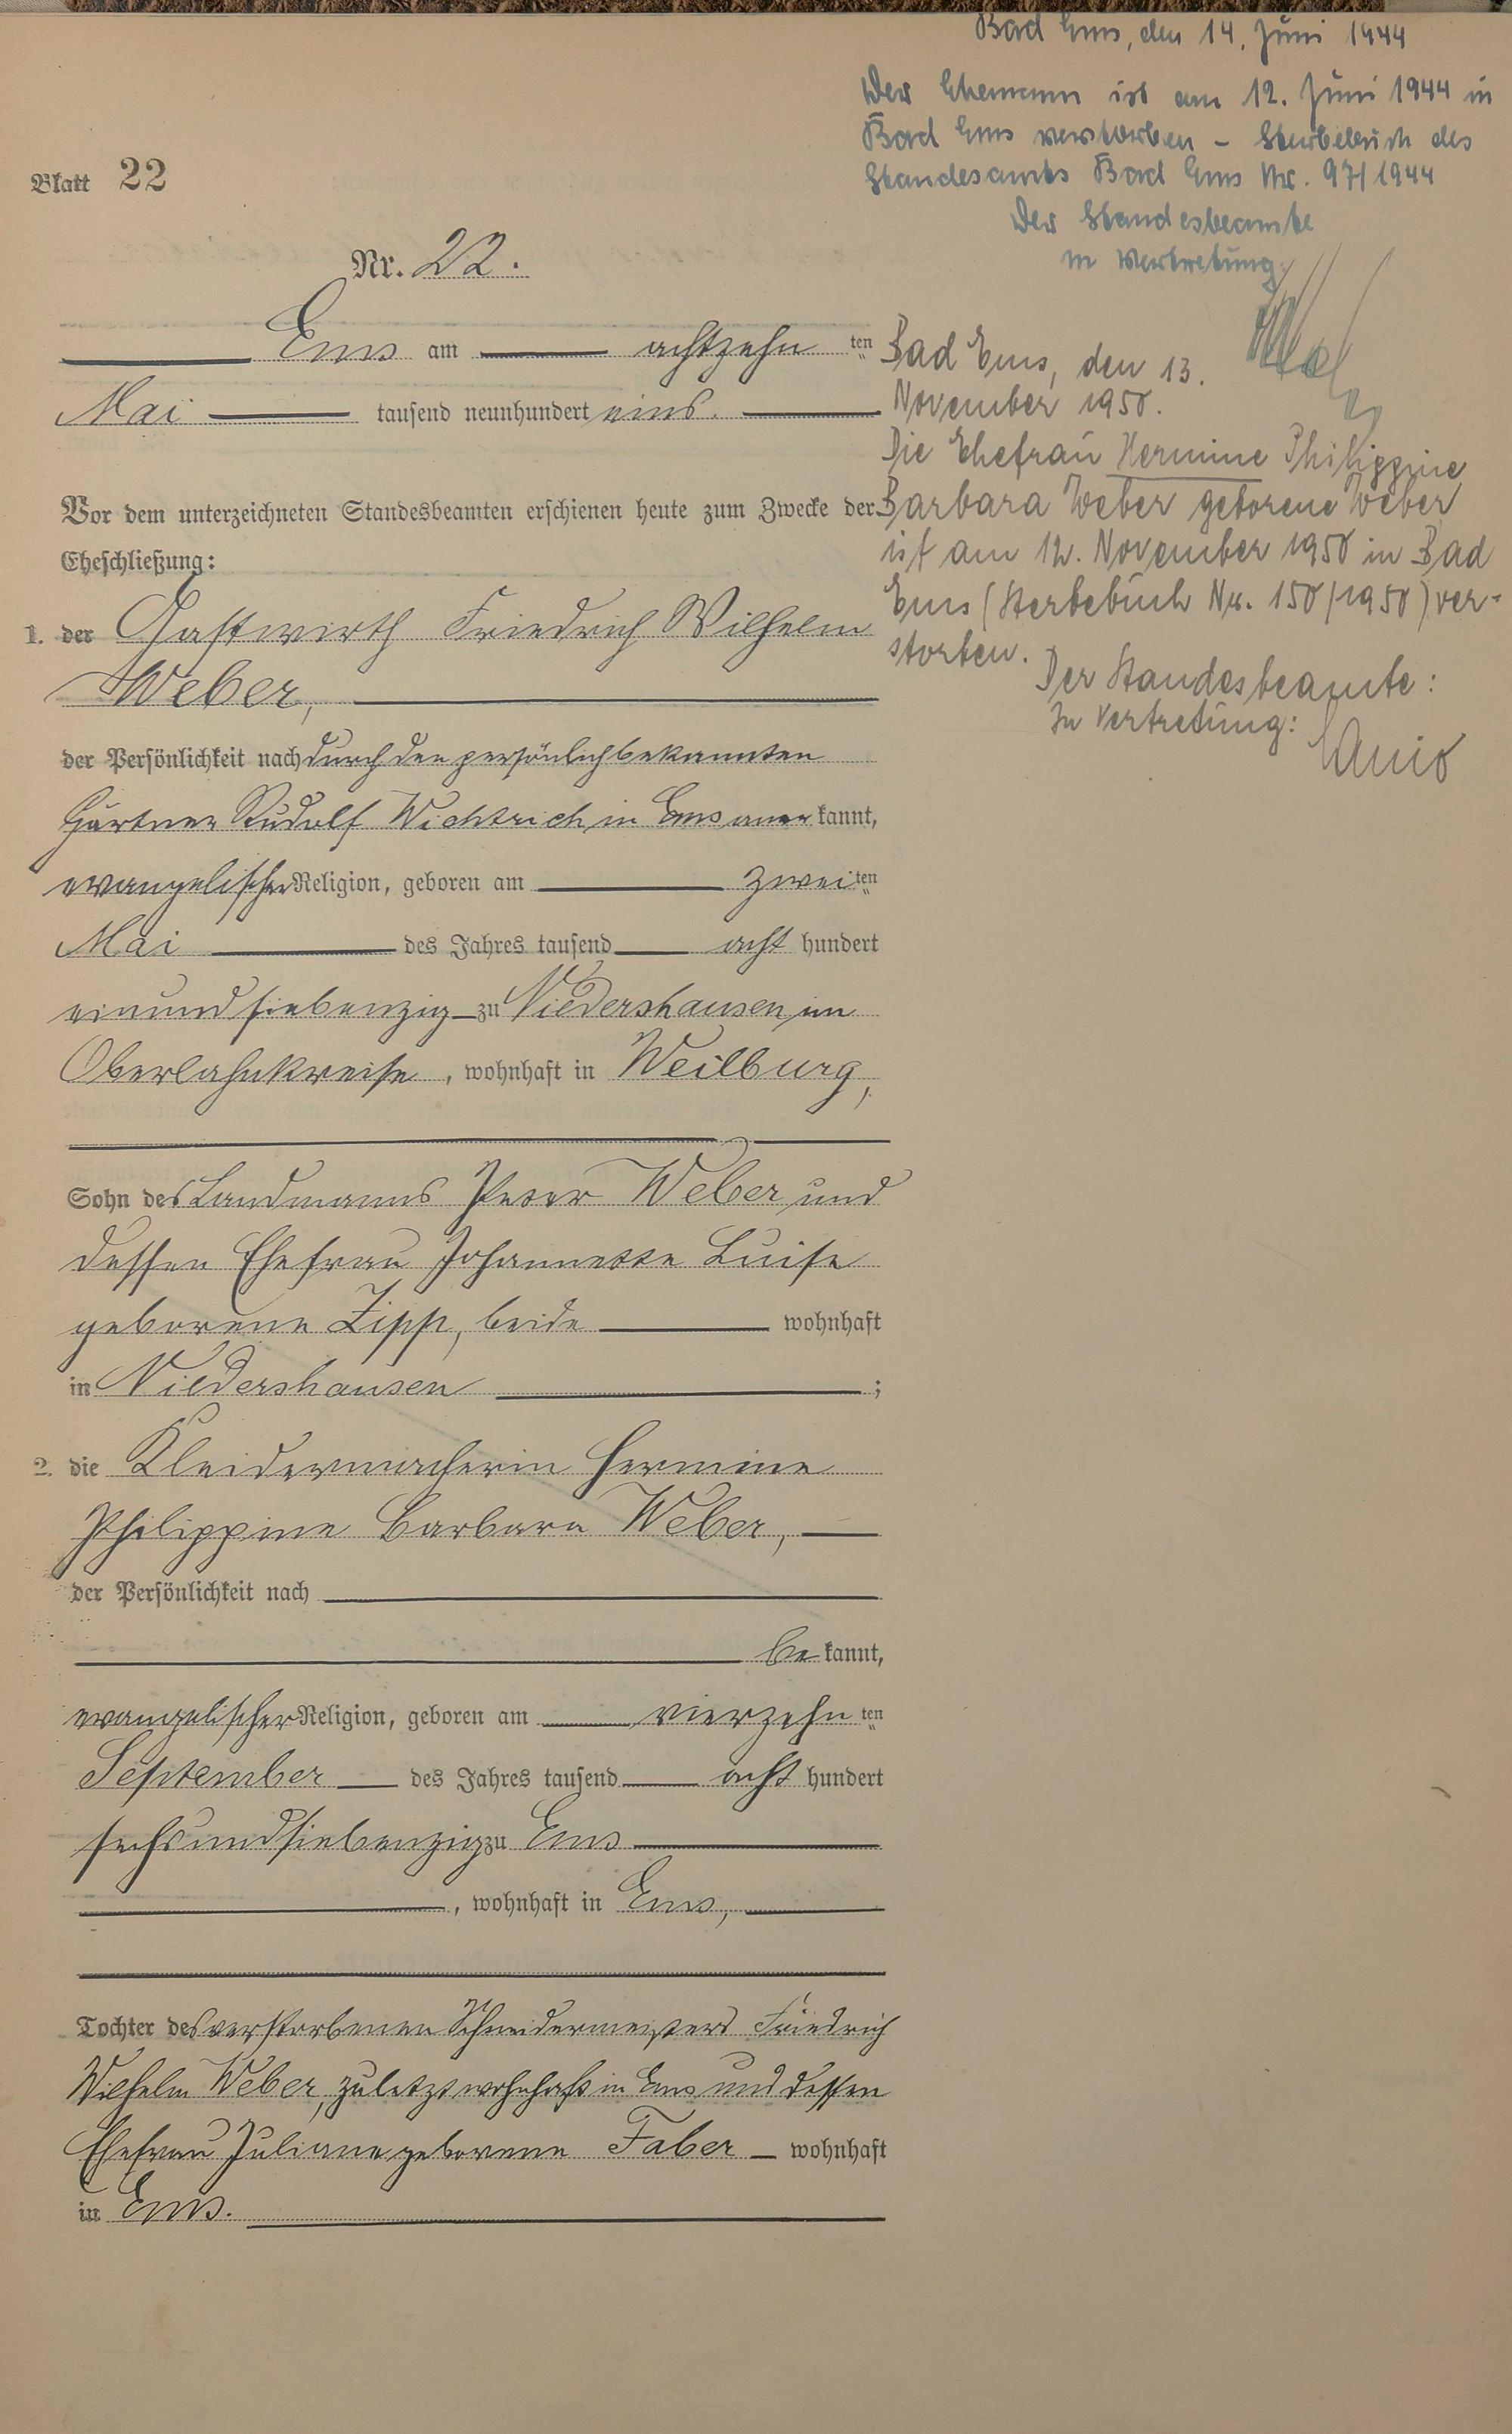 Bad Ems, den 14. Juni 1944
Der Ehemann ist am 12. Juni 1944 in
Bad Ems verstorben - Sterbebuch des
Standesamts Bad Ems Nr. 97/1944
Der Standesbeamte
in Vertretung:
Blatt 22
Nr. 22.
Ems am achtzehn ten
Mai tausend neunhundert eins.
Bad Ems, den 13.
November 1950.
Die Ehefrau Hermine Philippine
Barbara Weber geborene Weber
ist am 12. November 1950 in Bad
Ems (Sterbebuch Nr. 150/1950) ver-
storben.
Der Standesbeamte:
In Vertretung:
Vor dem unterzeichneten Standesbeamten erschienen heute zum Zwecke der
Eheschließung:
1. der Gastwirth Friedrich Wilhelm
Weber,
der Persönlichkeit nach durch den persönlich bekannten
Gärtner Rudolf Wichtrich in Ems anerkannt,
evangelischer Religion, geboren am zwei ten
Mai des Jahres tausend acht hundert
einundsiebenzig zu Niedershausen im
Oberlahnkreise, wohnhaft in Weilburg,
Sohn des Landmanns Peter Weber und
dessen Ehefrau Johannette Luise
geborene Zipp, beide wohnhaft
in Niedershausen ;
2. die Kleidermacherin Hermine
Philippine Barbara Weber,
der Persönlichkeit nach
bekannt,
evangelischer Religion, geboren am vierzehn ten
September des Jahres tausend acht hundert
sechsundsiebenzig zu Ems
, wohnhaft in Ems,
Tochter des verstorbenen Schneidermeisters Friedrich
Wilhelm Weber, zuletzt wohnhaft in Ems und dessen
Ehefrau Juliane geborene Faber wohnhaft
in Ems.